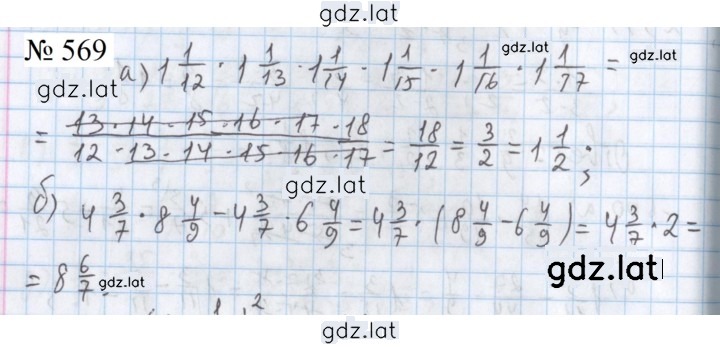 gdz.lat
№ 569
а) 1 1/12 · 1 1/13 · 1 1/14 · 1 1/15 · 1 1/16 · 1 1/17 =
gdz.lat gdz.lat gdz.lat
= 13·14·15·16·17·18 / 12·13·14·15·16·17 = 18/12 = 3/2 = 1 1/2 ;
gdz.lat
б) 4 3/7 · 8 4/9 − 4 3/7 · 6 4/9 = 4 3/7 · (8 4/9 − 6 4/9) = 4 3/7 · 2 =
= 8 6/7.
gdz.lat gdz.lat
gdz.lat